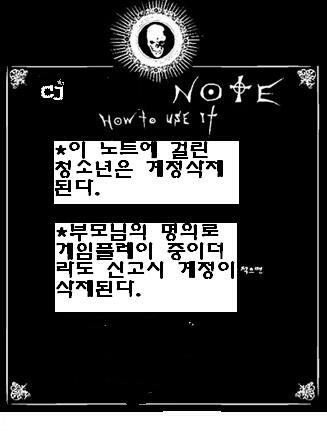 cj NOTE
HOW to USE IT
*이 노트에 걸린
청소년은 계정삭제
된다.
*부모님의 명의로
게임플레이 중이더
라도 신고시 계정이
삭제된다.